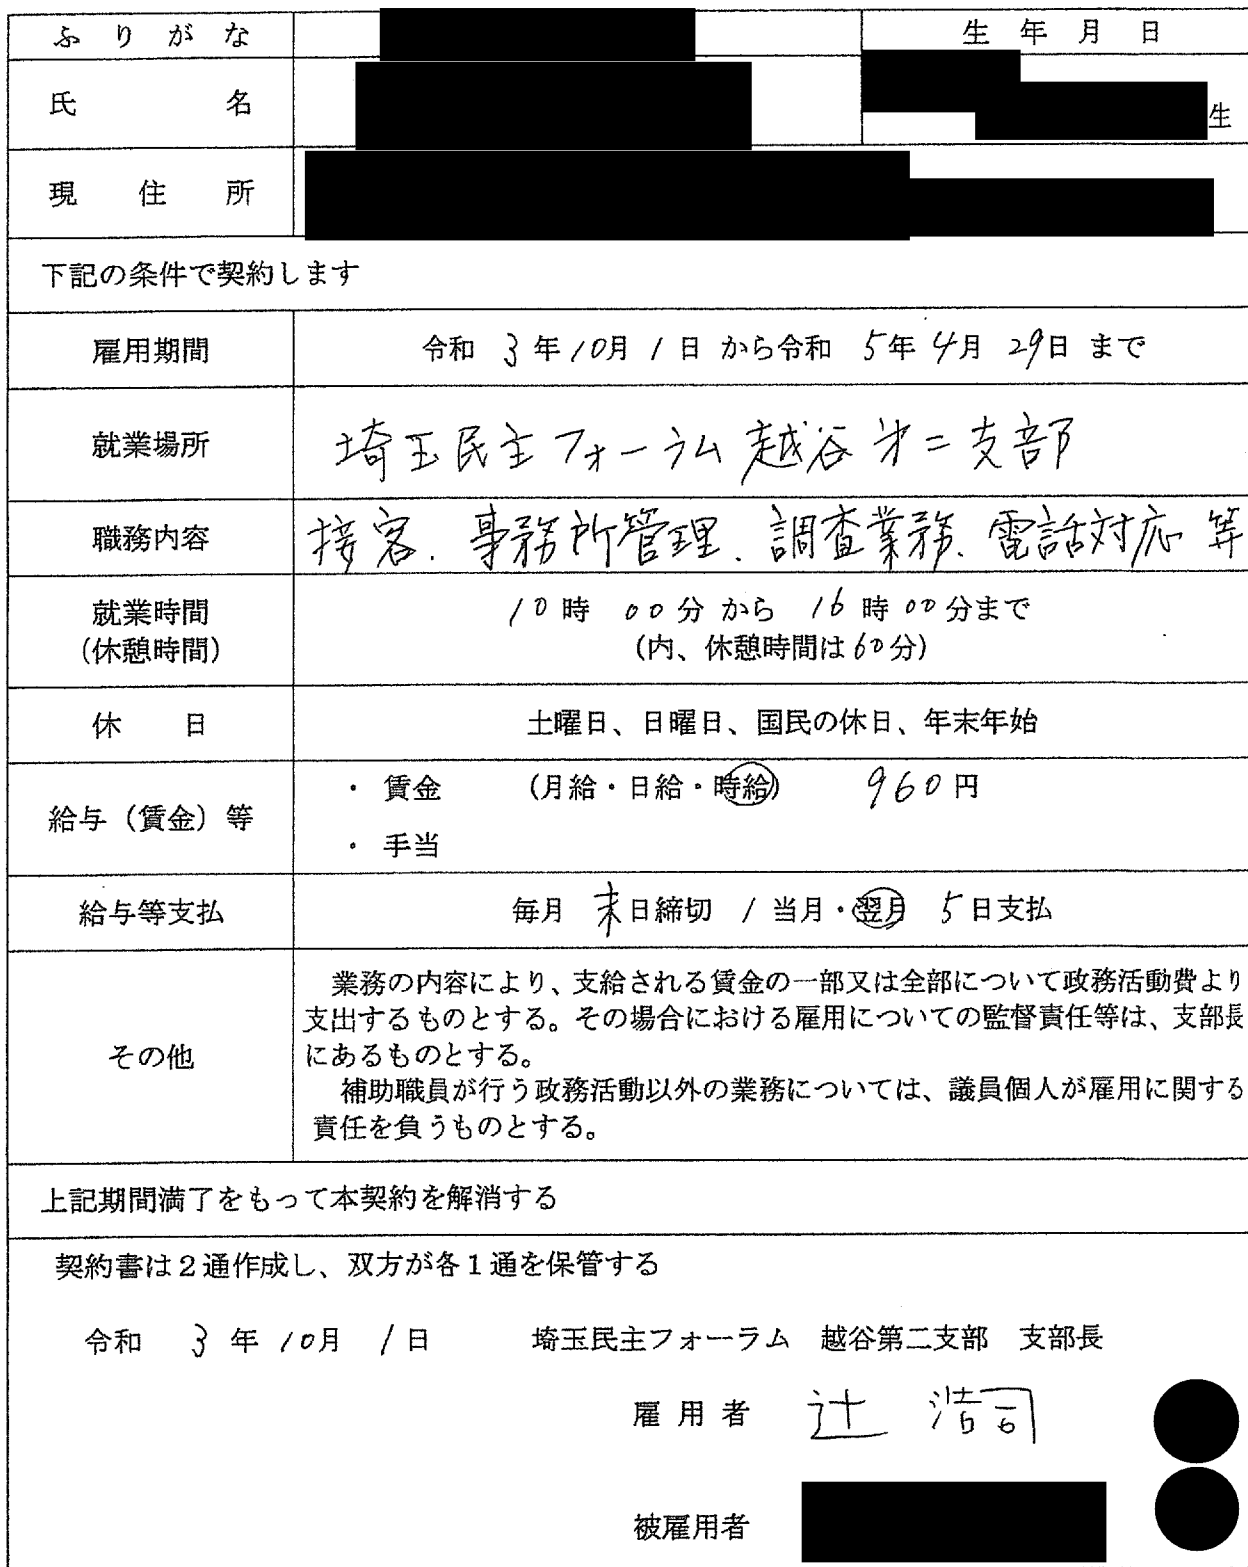 ふりがな
生年月日
氏名
生
現住所
下記の条件で契約します
雇用期間 令和 3年10月1日 から令和 5年4月29日 まで
就業場所 埼玉民主フォーラム 越谷才二支部
職務内容 接客、事務所管理、調査業務、電話対応 等
就業時間 10時 00分 から 16時 00分まで
(休憩時間) (内、休憩時間は60分)
休日 土曜日、日曜日、国民の休日、年末年始
給与(賃金)等 ・ 賃金 (月給・日給・時給) 960円
・ 手当
給与等支払 毎月 末日締切 / 当月・翌月 5日支払
その他 業務の内容により、支給される賃金の一部又は全部について政務活動費より
支出するものとする。その場合における雇用についての監督責任等は、支部長
にあるものとする。
補助職員が行う政務活動以外の業務については、議員個人が雇用に関する
責任を負うものとする。
上記期間満了をもって本契約を解消する
契約書は2通作成し、双方が各1通を保管する
令和 3年10月1日 埼玉民主フォーラム 越谷第二支部 支部長
雇用者 辻 浩司
被雇用者